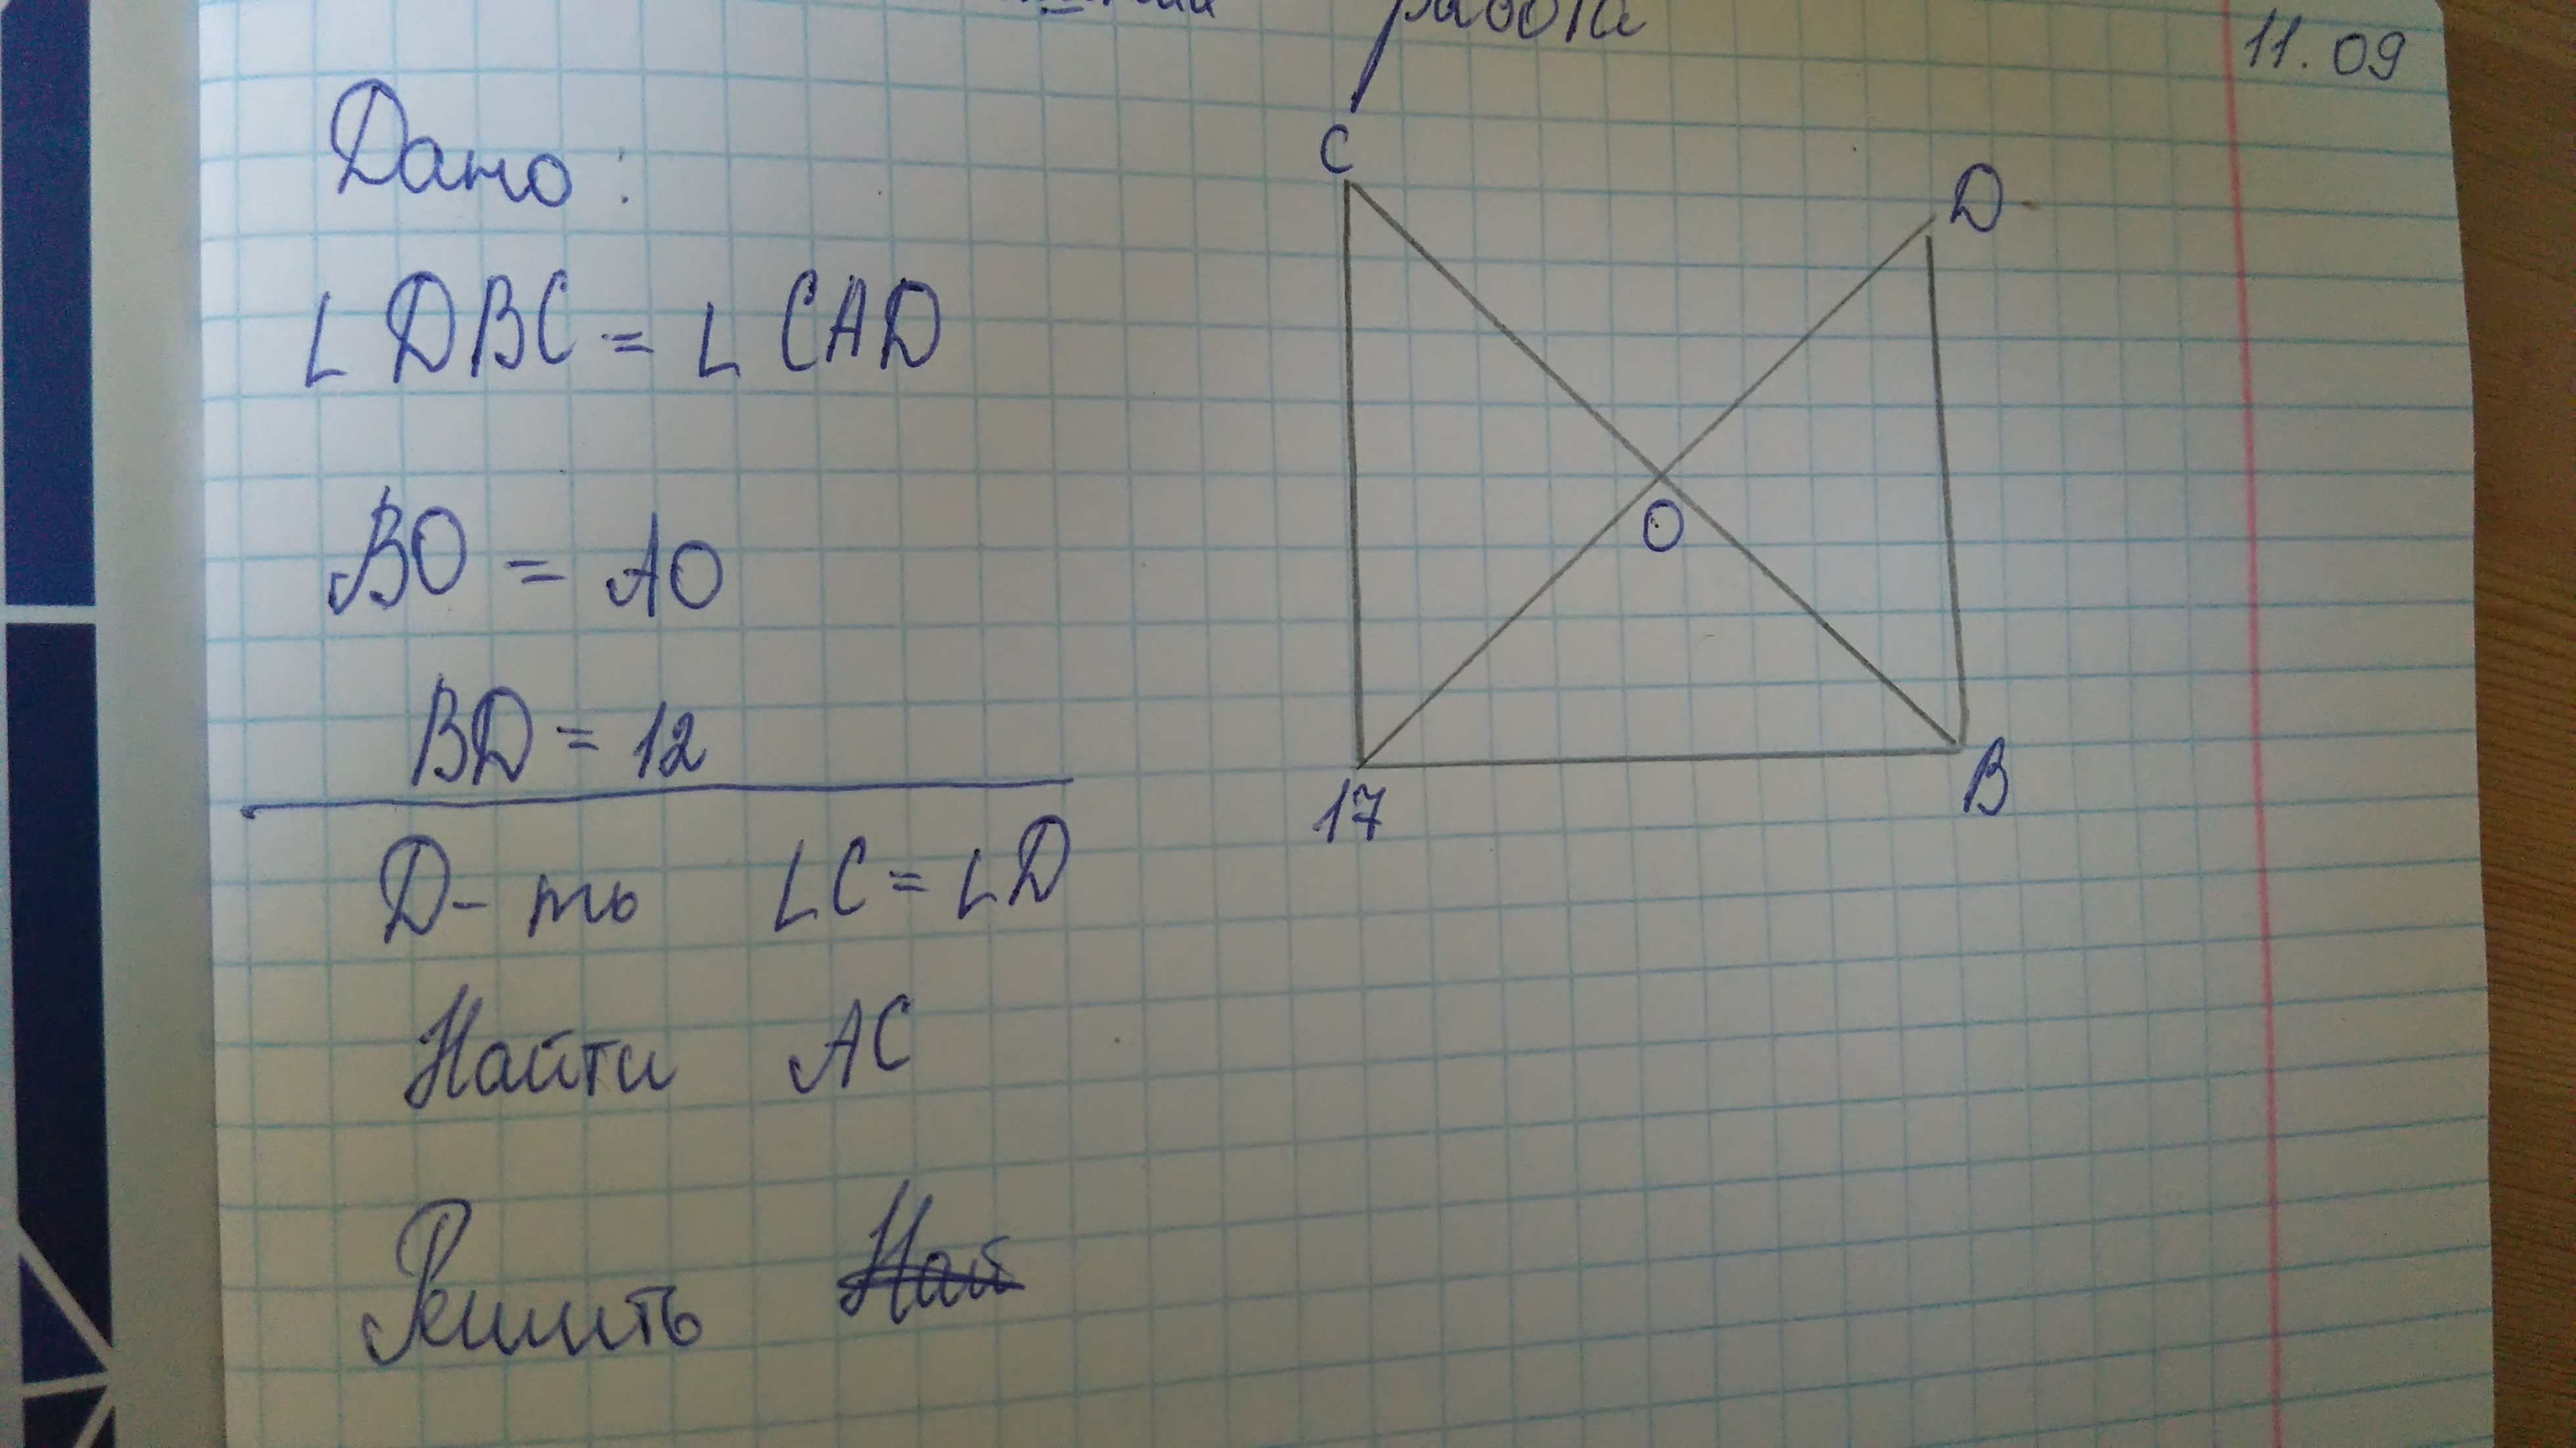 работа
11.09
Дано:
∟DBC = ∟CAD
BO = AO
BD = 12
Д-ть ∟C = ∟D
Найти AC
Решить
C
D
O
17
B